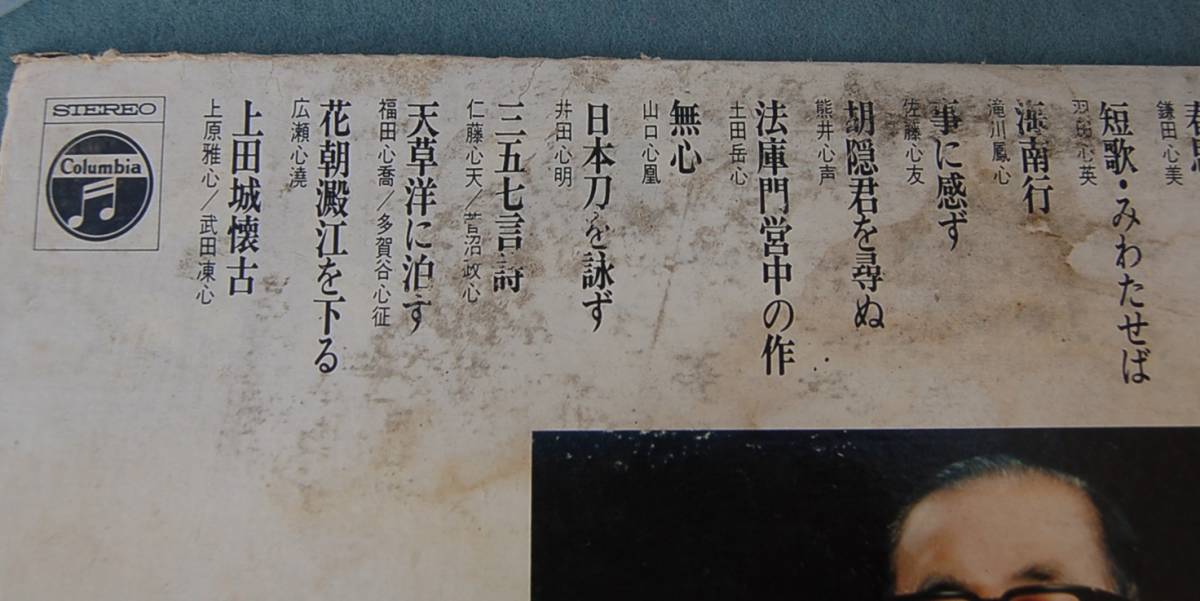 鎌田心美
短歌・みわたせば
心英
海南行
滝川鳳心
事に感ず
佐藤心友
胡隠君を尋ぬ
熊井心声
法庫門営中の作
土田岳心
無心
山口心凰
日本刀を詠ず
井田心明
三五七言詩
仁藤心天／菅沼政心
天草洋に泊す
福田心喬／多賀谷心征
花朝澱江を下る
広瀬心澆
上田城懐古
上原雅心／武田凍心
STEREO
Columbia